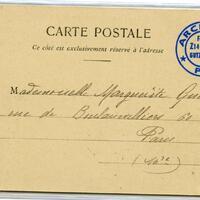 CARTE POSTALE
Ce côté est exclusivement réservé à l'adresse
Mademoiselle Marguerite
rue de Boulainvilliers 60
Paris
(16e)